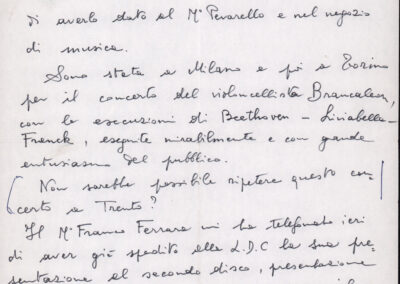 di averlo dato al M° Pevarello e nel negozio
di musica.
Sono stata a Milano e poi a Torino
per il concerto del violoncellista Brancaleon,
con le esecuzioni di Beethoven - Liviabella -
Frenck, eseguite mirabilmente e con grande
entusiasmo del pubblico.
Non sarebbe possibile ripetere questo con-
certo a Trento?
Il M° Franco Ferrara mi ha telefonato ieri
di aver già spedito alla L.D.C la sua pre-
sentazione al secondo disco, presentazione